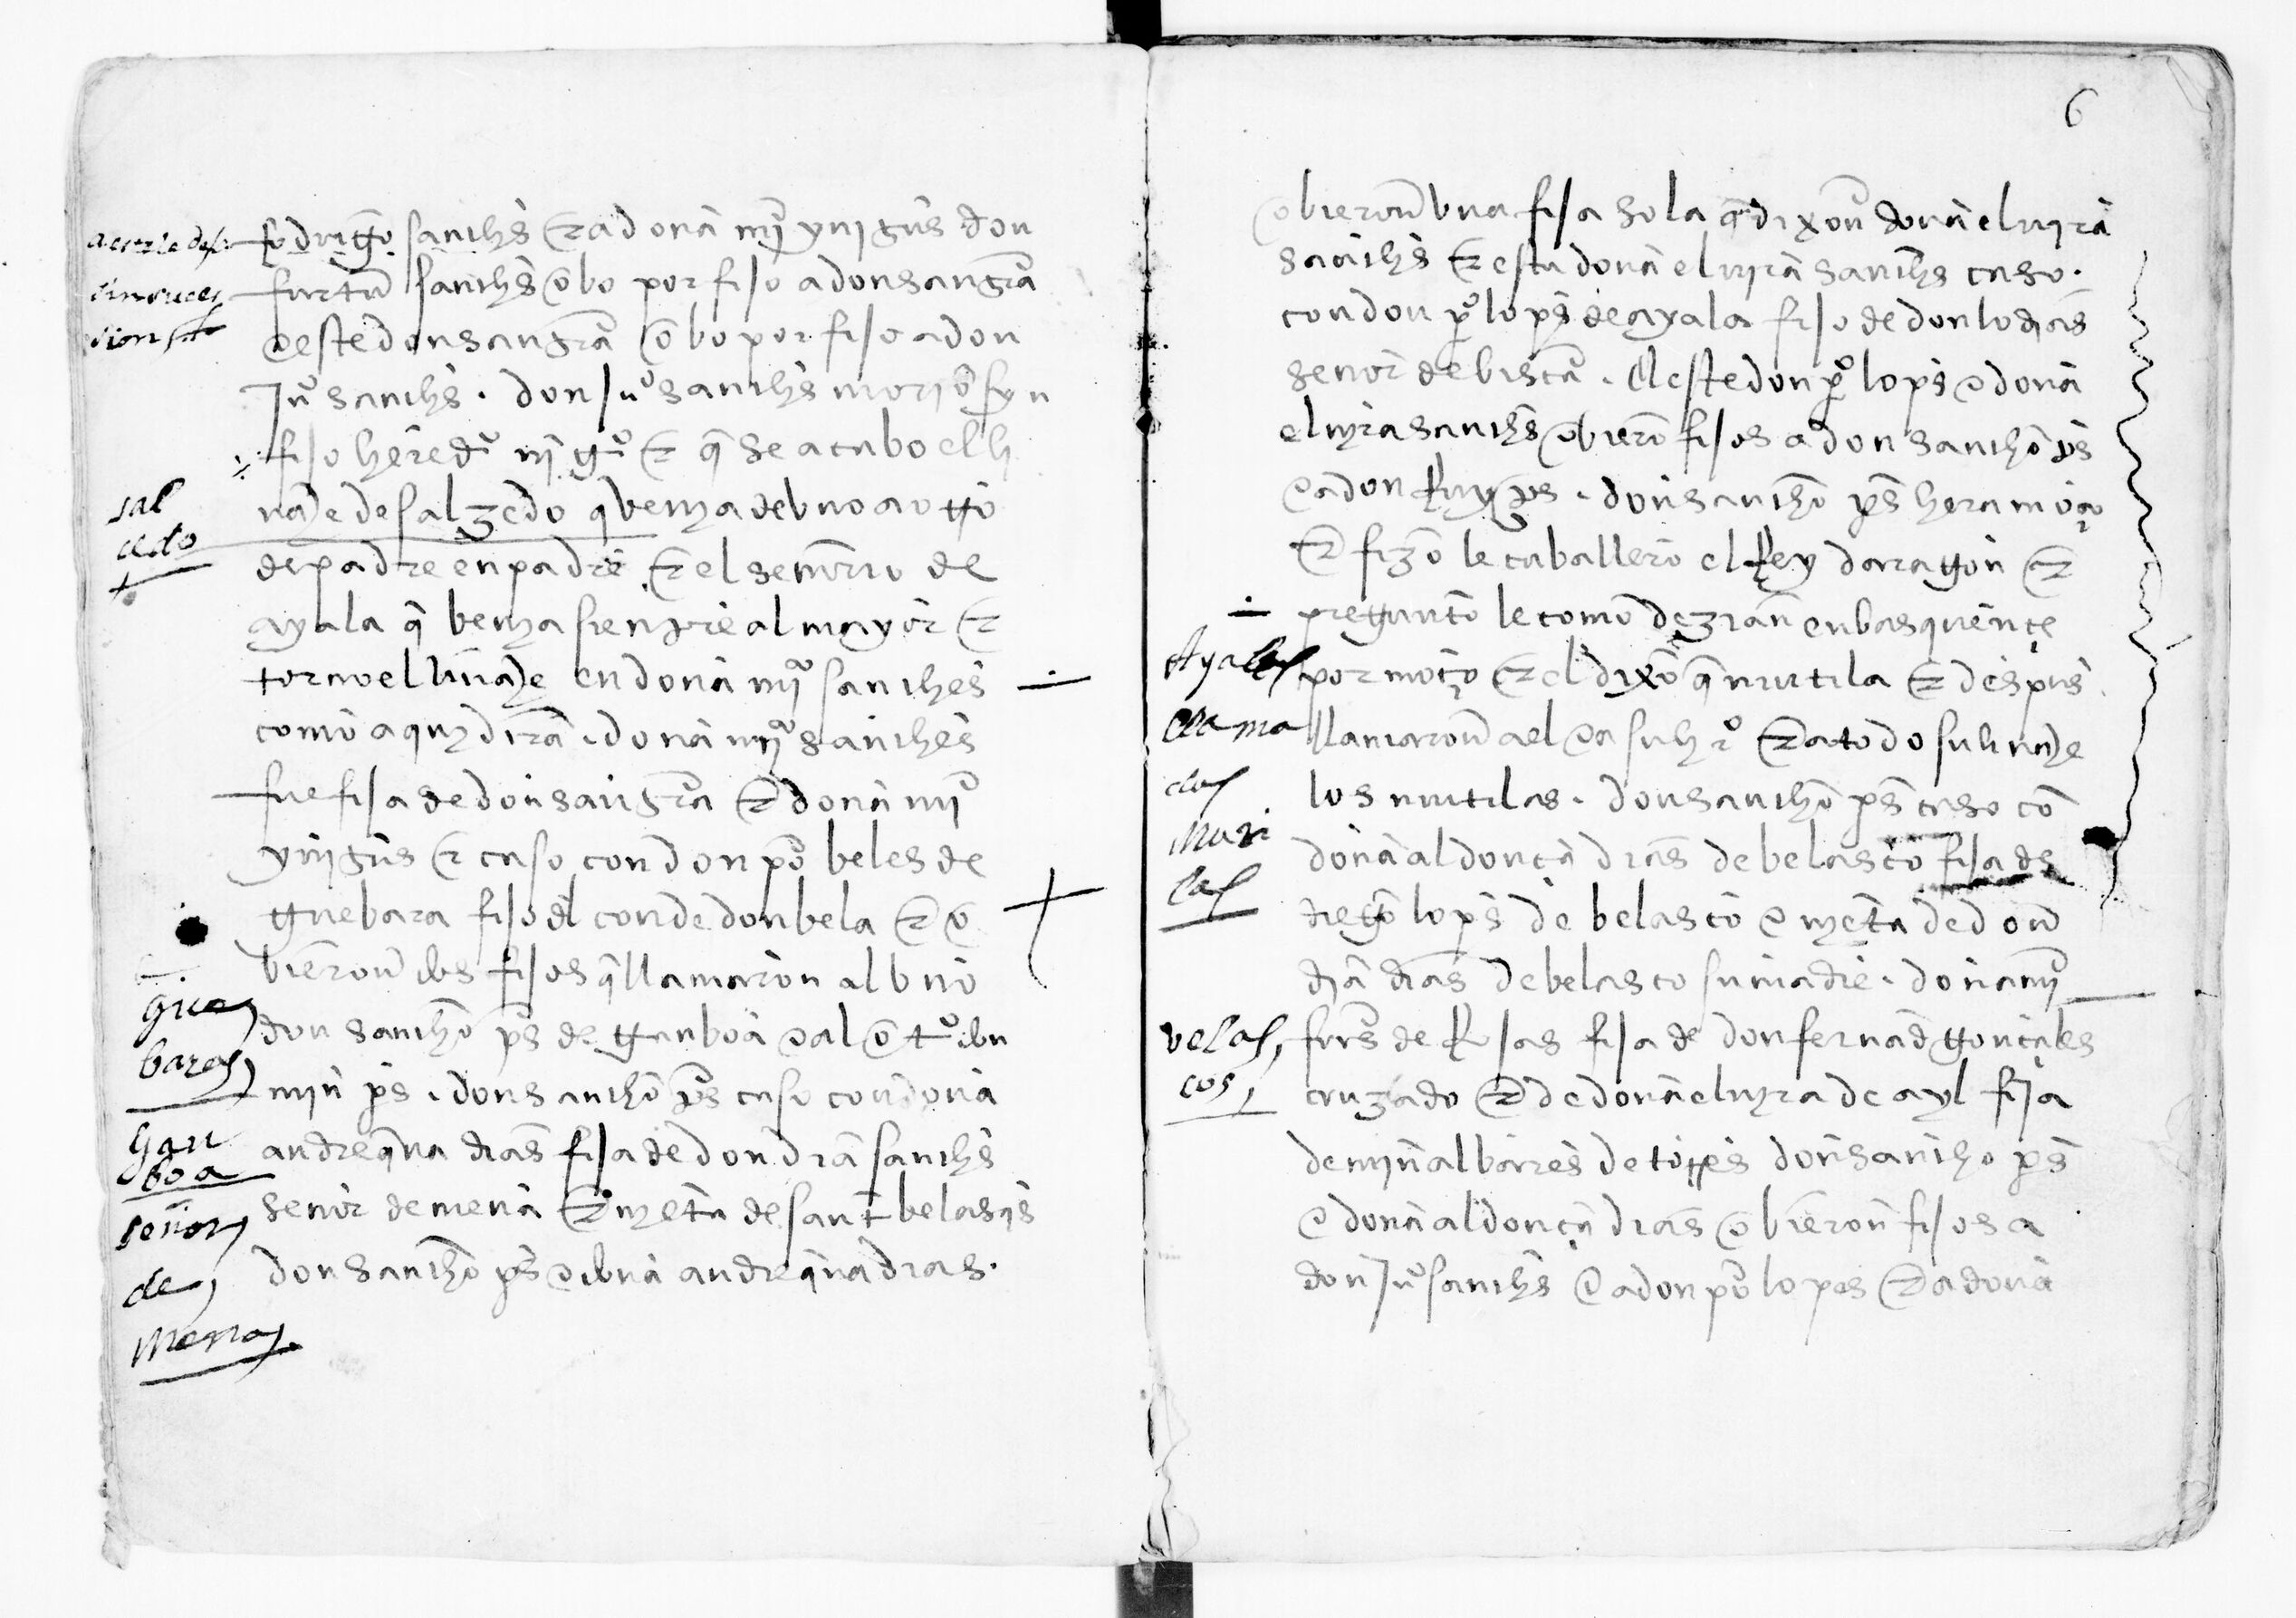 rodrigo sanchs & a dona mª ynigus don
furtun sanchs obo por fijo a don sangra
e este don sangra obo por fijo a don
juº sanchs . don juº sanchs moryo syn
fijo heredº & q se acabo el li
naje de salzedo q benya de bno a otro
de padre en padre & el senorio de
ayala q benya sienpre al mayor &
torno el linaje en dona mª sanches
como aquy dira . dona mª sanches
fue fija de don sangra & dona mª
ynigus & caso con don pº beles de
guebara fijo dl conde don bela & o
bieron fijos q llamaron al bno
don sancho ps de ganboa e al otº
myn ps . don sancho ps caso con dona
andrequna dias fija de don dia sanchs
senor de mena & nyeta de sant belasqs
don sancho ps e dona andrequina dias .
sal
cedo
gue
baras
gan
boa
señor
de
mena
6
obieron bna fija sola q dixon dona elvyra
sanchs & esta dona elvyra sanchs caso .
con don pº lops de ayala fijo de don lo dias
senor de bisca . A este don pº lops e dona
elvyra sanchs obiero fijos a don sancho ps
e a don Ruy ps . don sancho ps hera moço
& fizo le caballero el Rey daragon &
pregunto le como dezian en basquençe
por moço & el dixo q mutila & despus
llamaron a el e a su hº & a todo su linaje
los mutilas . don sancho ps caso co
dona aldonça dias de belasco fija de
diego lops de belasco e nyeta de don
dia dias de belasco su madre . dona mª
furs de Rojas fija de don fernad gonçales
cruzado & de dona elvyra de ayl fija
de myn albares de tores don sancho ps
e dona aldonça dias obieron fijos a
don juº sanchs e a don pº lopes & a dona
Ayalas
llama
dos
Muti
las
velas
cos